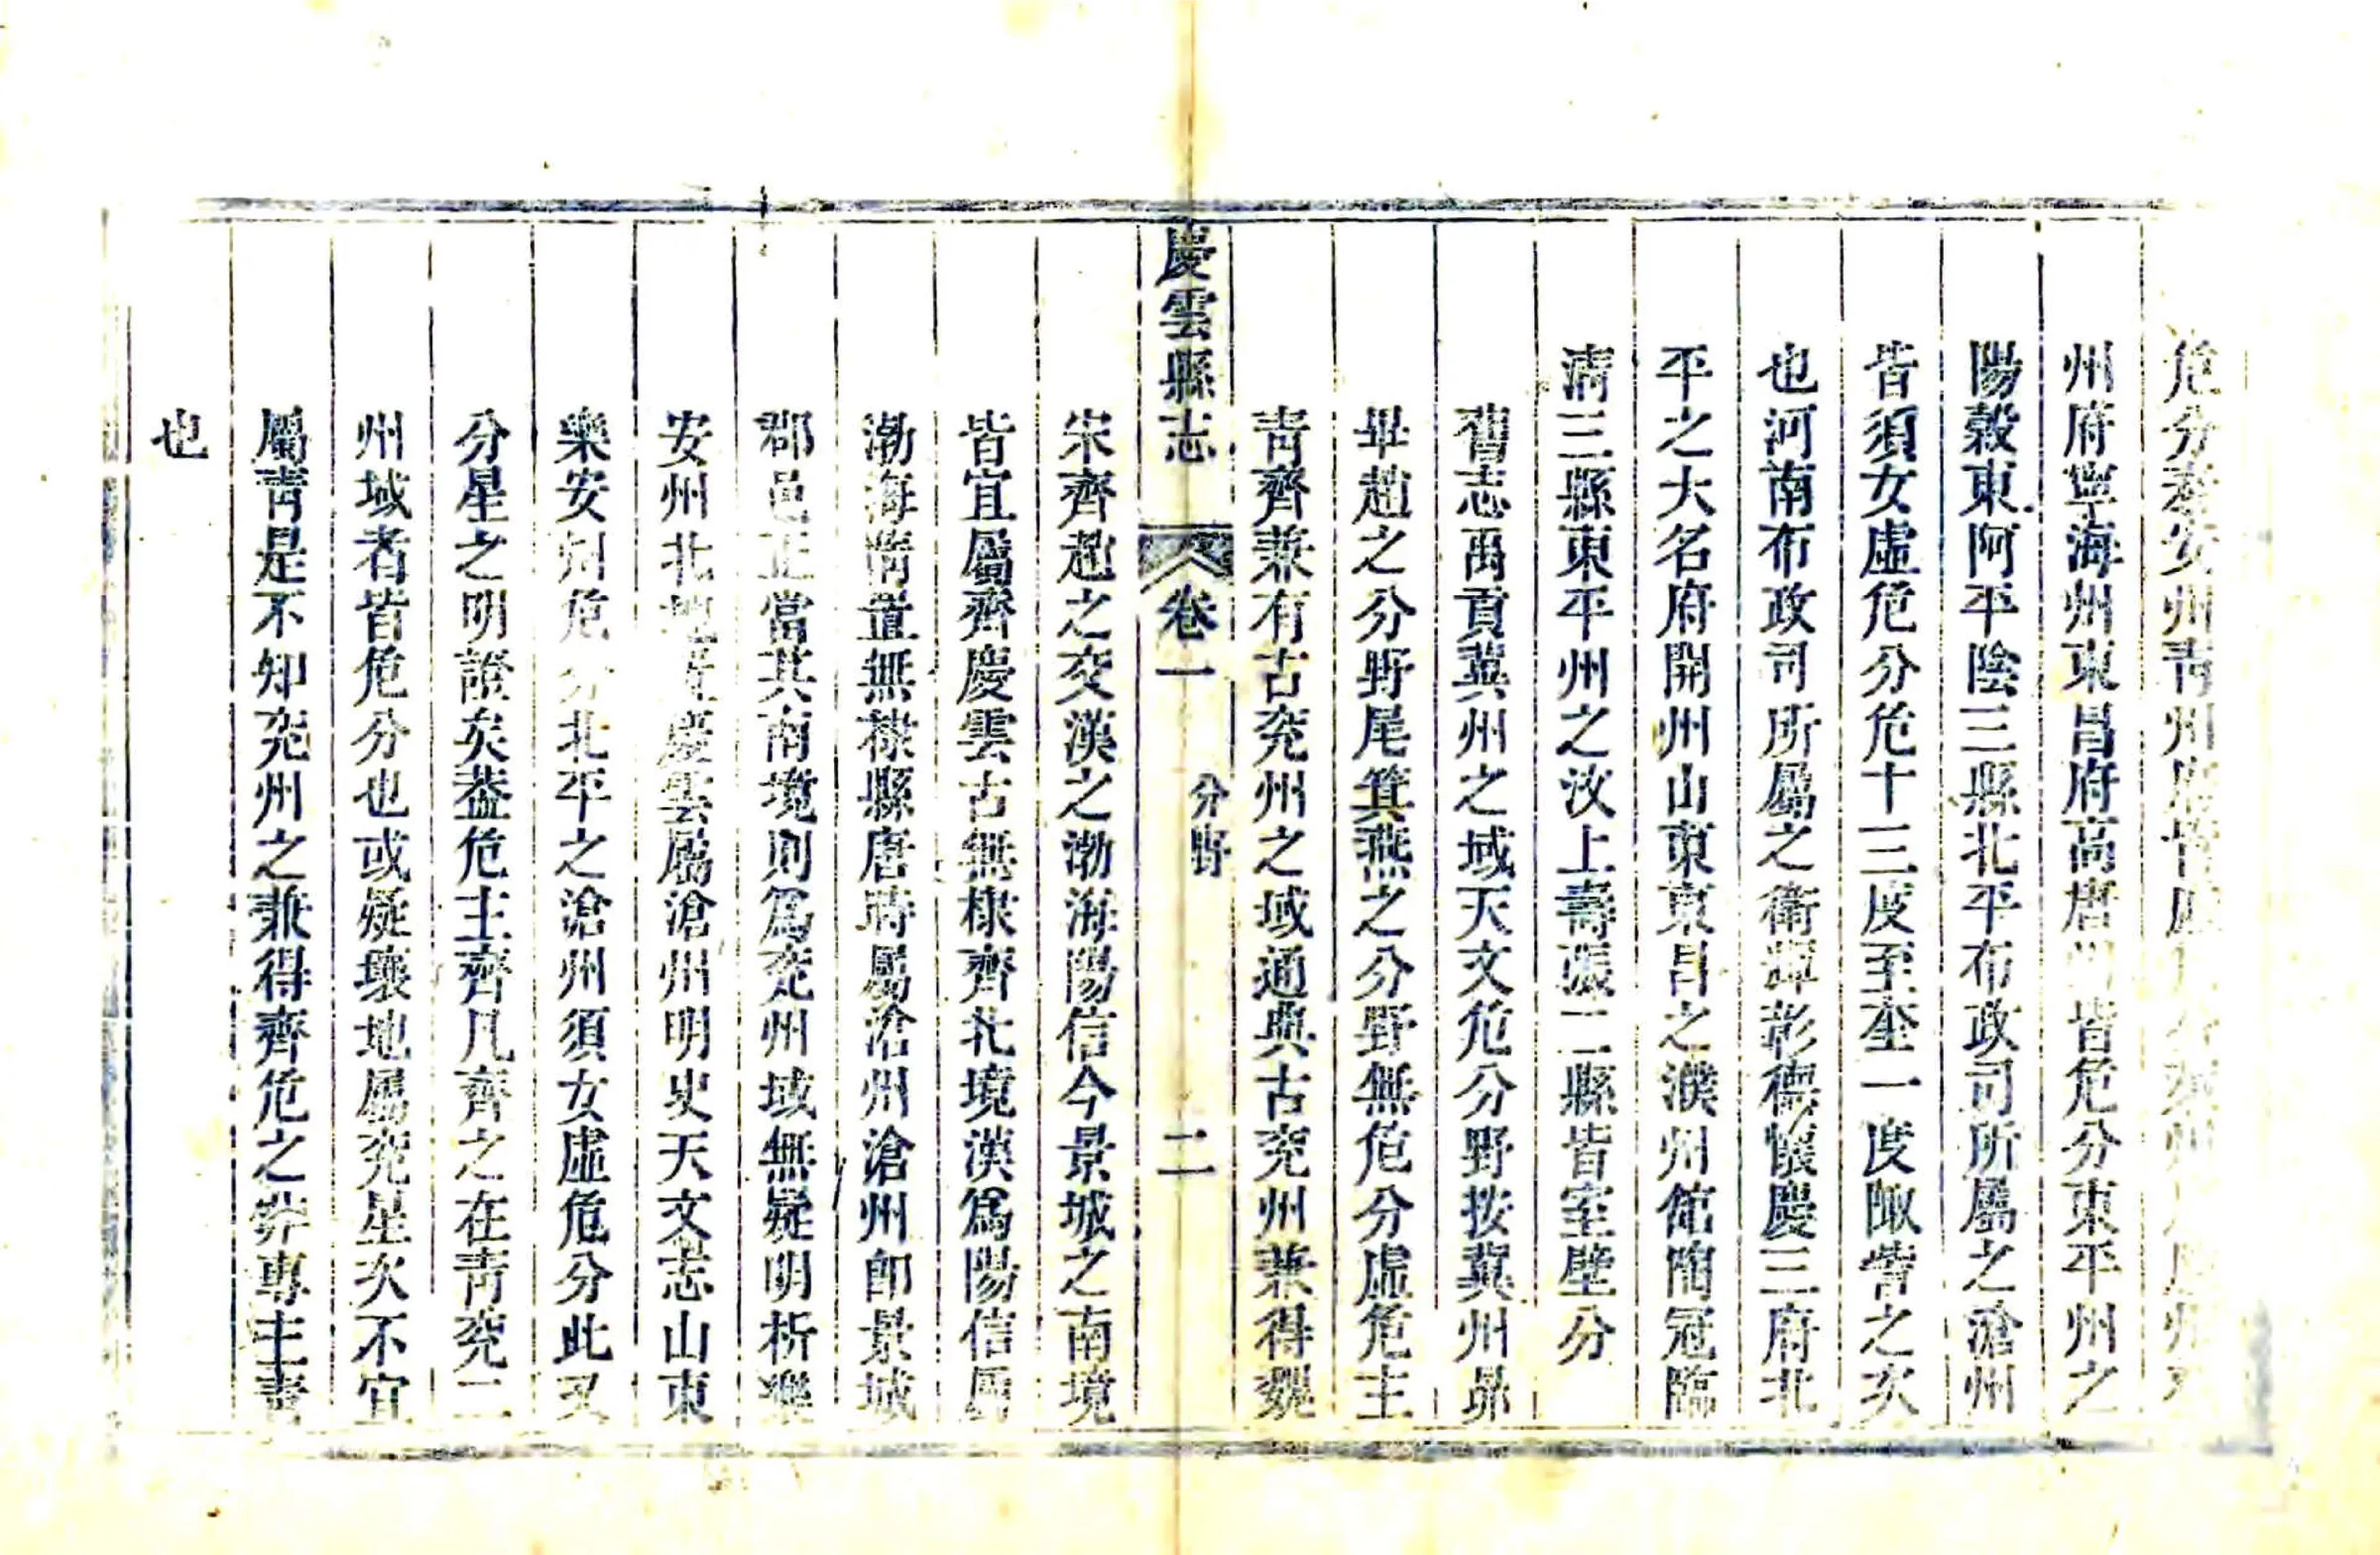 危分泰安州青州府皆虛危分萊州府登州
州府寧海州東昌府高唐州皆危分東平州之
陽穀東阿平陰三縣北平布政司所屬之滄州
皆須女虛危分危十三度至奎一度陬訾之次
也河南布政司所屬之衛輝彰德懷慶三府北
平之大名府開州山東東昌之濮州館陶冠臨
清三縣東平州之汶上壽張二縣皆室壁分
舊志禹貢冀州之域天文危分野按冀州昴
畢趙之分野尾箕燕之分野無危分虛危主
青齊兼有古兖州之域通典古兖州兼得魏
慶雲縣志 卷一 分野 二
宋齊趙之交漢之渤海陽信今景城之南境
皆宜屬齊慶雲古無棣齊北境漢爲陽信屬
渤海隋置無棣縣唐時屬滄州滄州卽景城
郡邑正當其南境則爲兖州域無疑明析樂
安州北地置慶雲屬滄州明史天文志山東
樂安州危分北平之滄州須女虛危分此又
分星之明證矣葢危主齊凡齊之在青兖二
州域者皆危分也或疑壤地屬兖星次不宜
屬青是不知兖州之兼得齊危之非專主青
也